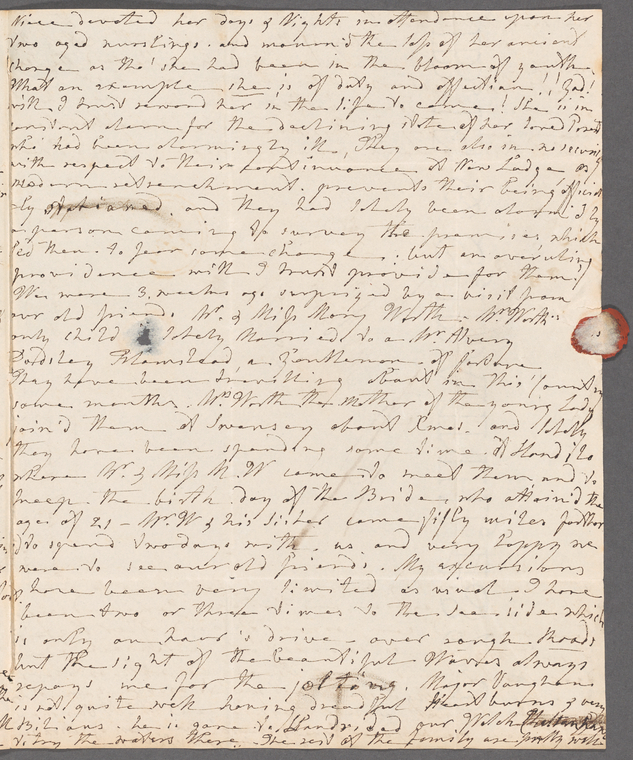 Niece devoted her days & Nights in attendance upon her
two aged nurslings. and mourn'd the loss of her ancient
charge as tho' she had been in the bloom of youth
What an example she is of duty and affection!! God!
will I trust reward her in the life to come! She is in
constant alarm for the declining state of her loved
who had been alarmingly ill, They are also in no security
with respect to their continuance at New Lodge as
modern retrenchment. prevents their being
and they had lately been alarm'd by
a person coming to survey the premises which
led them to fear some change: but an overuling
providence will I trust provide for them!
We were 3 weeks ago surprized by a visit from
our old friends Mr. & Miss Mary Worth - Mr Worth's
only child is lately Married to a Mr Alvery
a Gentleman of fortune
They have been travelling about in this Country
some months. Mrs Worth the Mother of the young Lady
join'd them at Swansey about Xmas. and lately
they have been spending some time at
where Mr. & Miss M. W came to meet them, and to
keep the birth day of the Bride, who attain'd the
age of 21 - Mr W & his Sister came fifty miles farther
to spend two days with us and very happy we
were to see our old friends. My excursions
have been very limited as usual. I have
been two or three times to the sea side which
is only an hour's drive - over rough Roads
but the sight of the beautiful Waves always
repays me for the jolting. Major Vaughan
is not quite well having dreadful Heartburns & very
Bilious. he is gone to Llandridod our Welch
to try the waters there. The rest of the family are pretty well